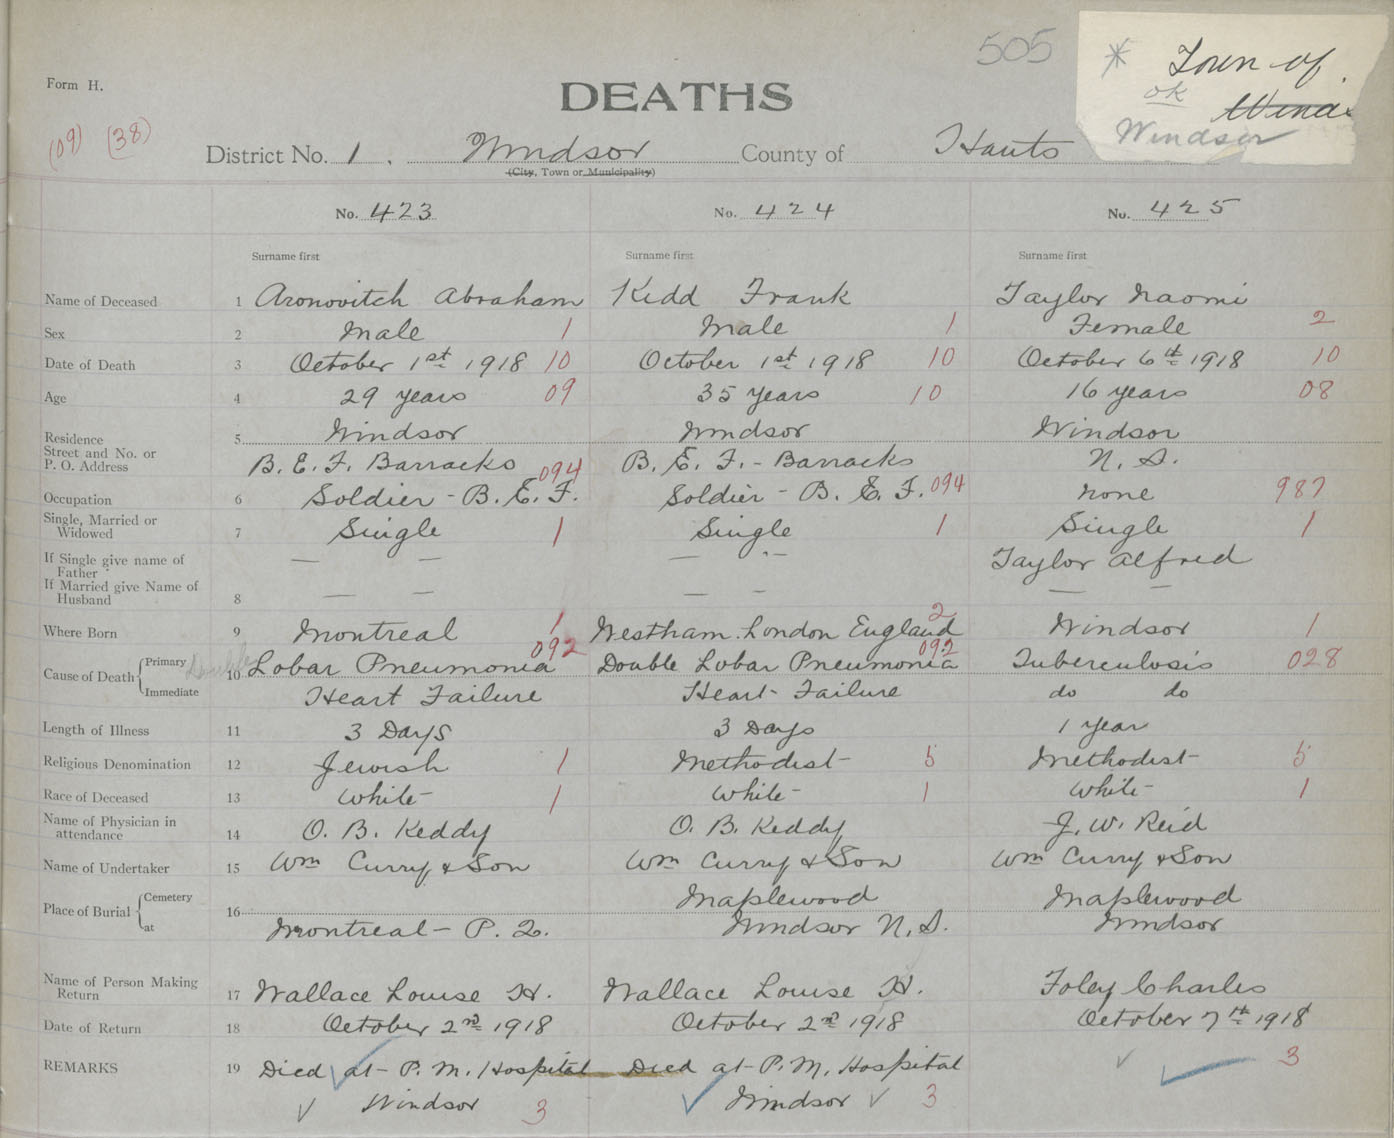 505
* Town of
ok Wind
Windsor
Form H.
DEATHS
(09) (38)
District No. 1. Windsor County of Hants
(City, Town or Municipality)
No. 423 No. 424 No. 425
Surname first Surname first Surname first
Name of Deceased 1 Aronovitch Abraham Kidd Frank Taylor Naomi
Sex 2 Male 1 Male 1 Female 2
Date of Death 3 October 1st 1918 10 October 1st 1918 10 October 6th 1918 10
Age 4 29 years 09 35 years 10 16 years 08
Residence 5 Windsor Windsor Windsor
Street and No. or
P. O. Address B. E. F. Barracks B. E. F. - Barracks N. S.
Occupation 6 Soldier - B. E. F. 094 Soldier - B. E. F. 094 none 987
Single, Married or
Widowed 7 Single 1 Single 1 Single 1
If Single give name of
Father — — — — Taylor Alfred
If Married give Name of
Husband 8 — — — — — —
Where Born 9 Montreal 1 Westham. London England 2 Windsor 1
Cause of Death Primary 10 Double Lobar Pneumonia 092 Double Lobar Pneumonia 092 Tuberculosis 028
Immediate Heart Failure Heart Failure do do
Length of Illness 11 3 Days 3 Days 1 year
Religious Denomination 12 Jewish 1 Methodist 5 Methodist 5
Race of Deceased 13 White 1 White 1 White 1
Name of Physician in
attendance 14 O. B. Keddy O. B. Keddy J. W. Reid
Name of Undertaker 15 Wm Curry & Son Wm Curry & Son Wm Curry & Son
Place of Burial Cemetery 16 Maplewood Maplewood
at Montreal - P. Q. Windsor N. S. Windsor
Name of Person Making
Return 17 Wallace Louise H. Wallace Louise H. Foley Charles
Date of Return 18 October 2nd 1918 October 2nd 1918 October 7th 1918
REMARKS 19 Died at P. M. Hospital Died at P. M. Hospital 3
Windsor 3 Windsor 3